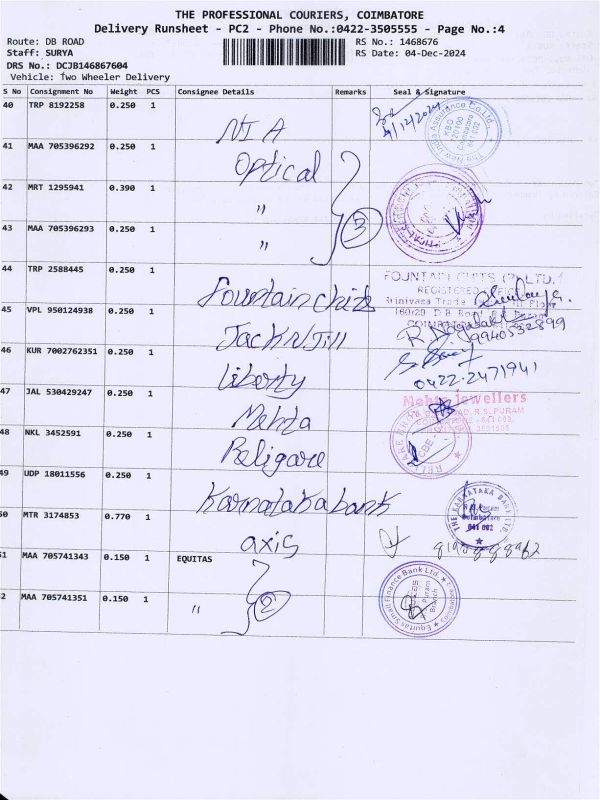 THE PROFESSIONAL COURIERS, COIMBATORE
Delivery Runsheet - PC2 - Phone No.:0422-3505555 - Page No.:4
Route: DB ROAD RS No.: 1468676
Staff: SURYA RS Date: 04-Dec-2024
DRS No.: DCJB146867604
Vehicle: Two Wheeler Delivery
S No Consignment No Weight PCS Consignee Details Remarks Seal & Signature
40 TRP 8192258 0.250 1 NIA 4/12/2024
41 MAA 705396292 0.250 1 Optical
42 MRT 1295941 0.390 1 〃 3
43 MAA 705396293 0.250 1 〃
44 TRP 2588445 0.250 1 Fountain chits
FOUNTAIN CHITS (P) LTD.,
REGISTERED OFFICE
Srinivasa Trade Floor
160/29 D.B. Road
45 VPL 950124938 0.250 1 Jack N Jill 9940532899
46 KUR 7002762351 0.250 1 Liberty 0422-2471941
47 JAL 530429247 0.250 1 Mehta
Mehta Jewellers
ROAD, R.S. PURAM
48 NKL 3452591 0.250 1 Religare
49 UDP 18011556 0.250 1 Karnataka bank
THE KARNATAKA BANK LTD.
Coimbatore
641 002
50 MTR 3174853 0.770 1 axis
51 MAA 705741343 0.150 1 EQUITAS
52 MAA 705741351 0.150 1 〃 2
Equitas Small Finance Bank Ltd. Coimbatore
Puram
Branch